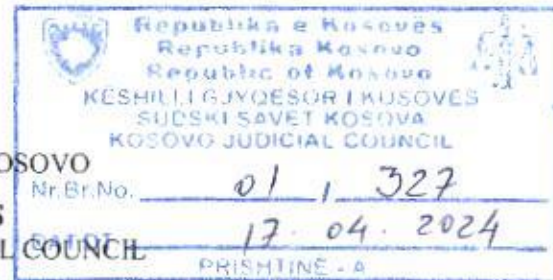 Republika e Kosovës
Republika Kosovo
Republic of Kosovo
KËSHILLI GJYQËSOR I KOSOVËS
SUDSKI SAVET KOSOVA
KOSOVO JUDICIAL COUNCIL
OSOVO
Nr.Br.No. 01 / 327
S
17. 04. 2024
L COUNCIL
PRISHTINË - A